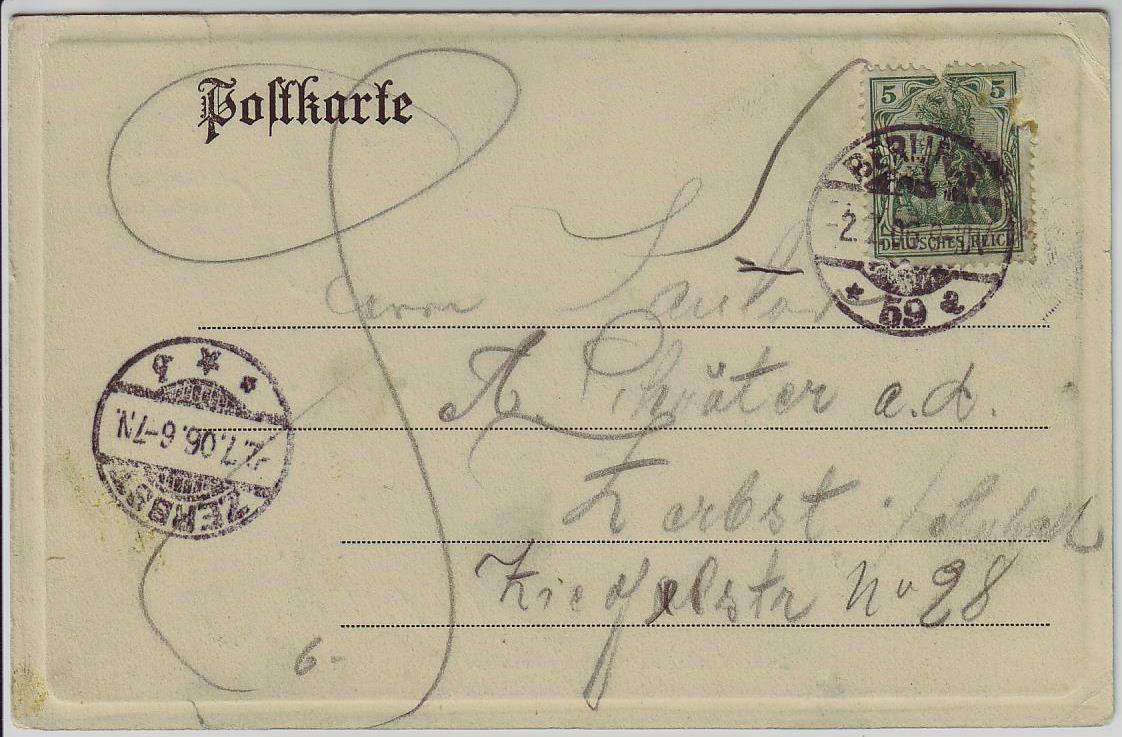 Postkarte
5 5
DEUTSCHES REICH
BERLIN S.
2.7.06
* 59 a
Herrn
A. Schräter a.d.
Zerbst Anhalt
Ziegelstr No 28
ZERBST
2.7.06.6-7N.
* b
6-